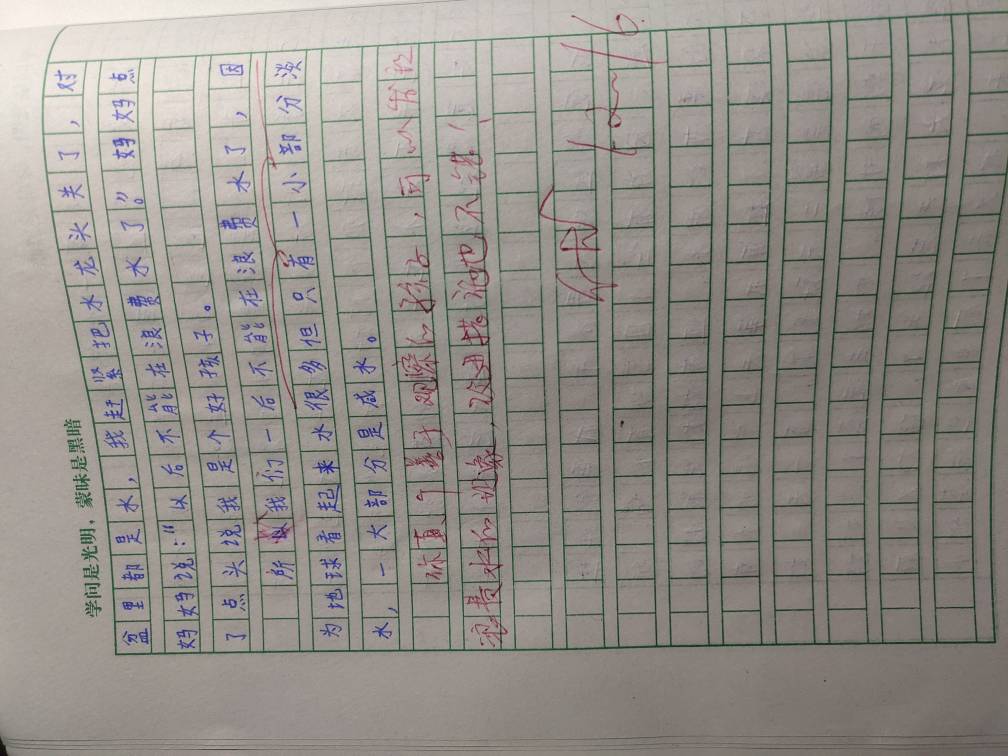 学问是光明，蒙昧是黑暗
盆里都是水，我赶紧把水龙头关了，对
妈妈说：“以后不能在浪费水了”。妈妈点
了点头说我是个好孩子。
所以我们一后不能在浪费水了，因
为地球看起来水很多但只有一小部分淡
水，一大部分是咸水。
你真是个善于观察的孩子，可以发现
浪费水的现象，次用措施也不错！
12-16